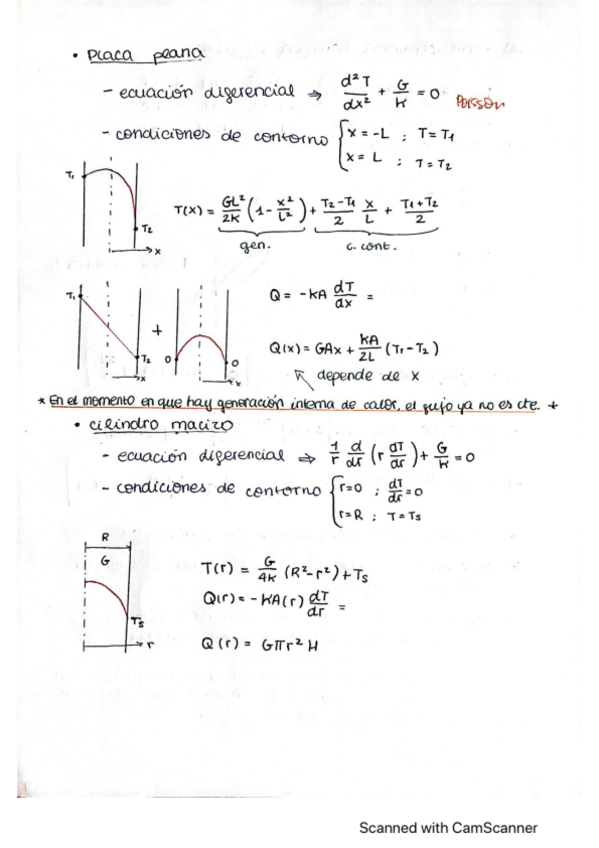 • Placa plana
- ecuación diferencial ⇒ d²T/dx² + G/K = 0 Poisson
- condiciones de contorno { x = -L ; T = T1
x = L ; T = T2
T1
T2
x
T(x) = GL²/2K (1 - x²/L²) + T2-T1/2 x/L + T1+T2/2
gen. c. cont.
T1
T2
x
+
0
0
x
Q = -KA dT/dx =
Q(x) = GAx + KA/2L (T1-T2)
depende de x
* En el momento en que hay generación interna de calor, el flujo ya no es cte. *
• cilindro macizo
- ecuación diferencial ⇒ 1/r d/dr (r dT/dr) + G/K = 0
- condiciones de contorno { r=0 ; dT/dr = 0
r=R ; T=Ts
R
G
Ts
r
T(r) = G/4K (R²-r²) + Ts
Q(r) = -KA(r) dT/dr =
Q(r) = Gπr² H
Scanned with CamScanner